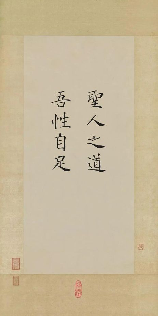 聖人之道
吾性自足